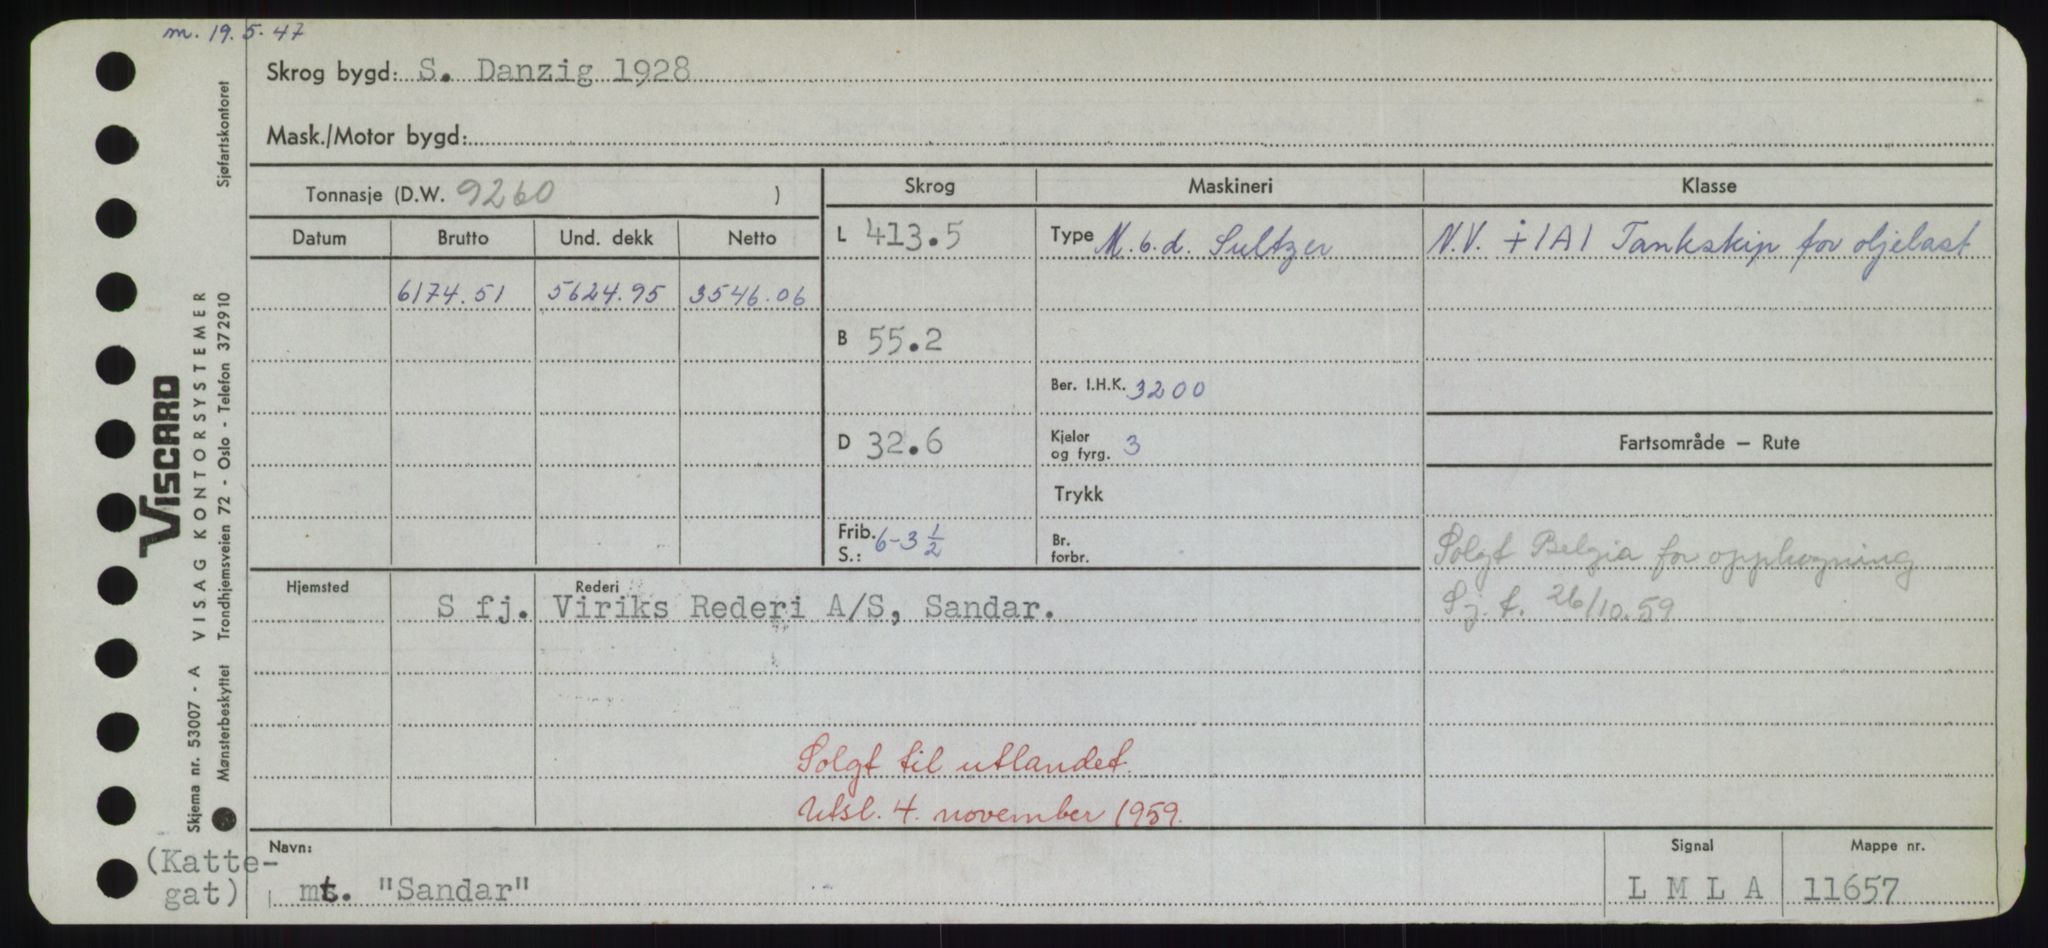 m. 19.5.47
Skrog bygd: S. Danzig 1928
Mask./Motor bygd:
Tonnasje (D.W. 9260 )
Datum Brutto Und. dekk Netto
6174.51 5624.95 3546.06
Skrog Maskineri Klasse
L 413.5 Type M. 6. d. Sultzer N.V. +1A1 Tankskip for oljelast
B 55.2
Ber. I.H.K. 3200
D 32.6 Kjeler og fyrg. 3
Fartsområde – Rute
Trykk
Frib. S.: 6-3 1/2 Br. forbr.
Solgt Belgia for opphogning
Sj. f. 26/10.59
Hjemsted Rederi
S fj. Viriks Rederi A/S, Sandar.
Solgt til utlandet.
Utsl. 4. november 1959.
Navn: Signal Mappe nr.
(Katte-
gat)
mt. "Sandar" L M L A 11657
VISCARD
Skjema nr. 53007 - A VISAG KONTORSYSTEMER Sjøfartskontoret
Mønsterbeskyttet Trondhjemsveien 72 - Oslo - Telefon 372910